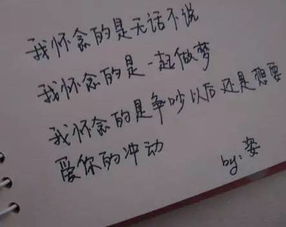 我怀念的是无话不说
我怀念的是一起做梦
我怀念的是争吵以后还是想要
爱你的冲动
by:安